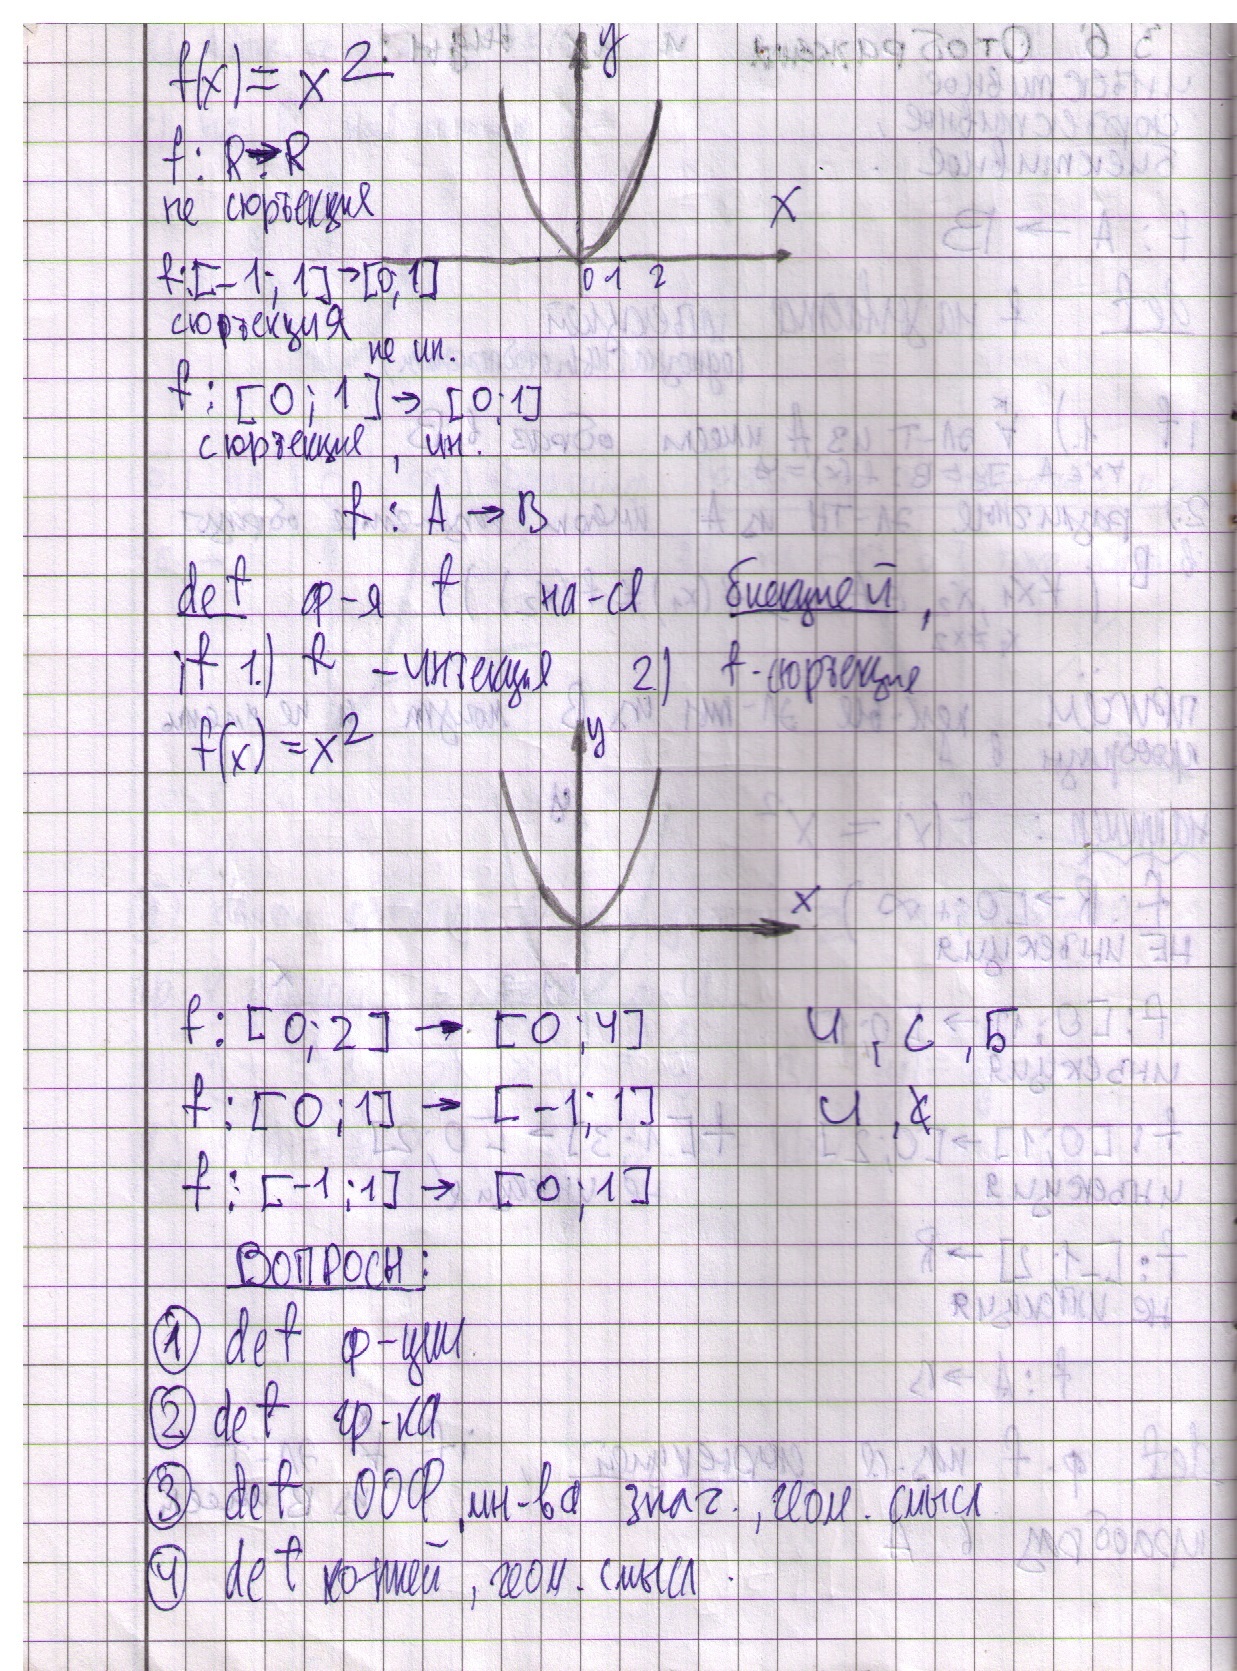 f(x) = x²
y
f: R → R
не сюръекция
X
f: [-1; 1] → [0; 1]
0 1 2
сюръекция
не ин.
f: [0; 1] → [0; 1]
сюръекция, ин.
f: A → B
def ф-я f на-ся биекцией,
if 1.) f - инъекция 2) f - сюръекция
f(x) = x²
y
x
f: [0; 2] → [0; 4] И, С, Б
f: [0; 1] → [-1; 1] И,
f: [-1; 1] → [0; 1]
Вопросы:
① def ф-ции
② def гр-ка
③ def ООФ, мн-ва знач., геом. смысл
④ def корней, геом. смысл.